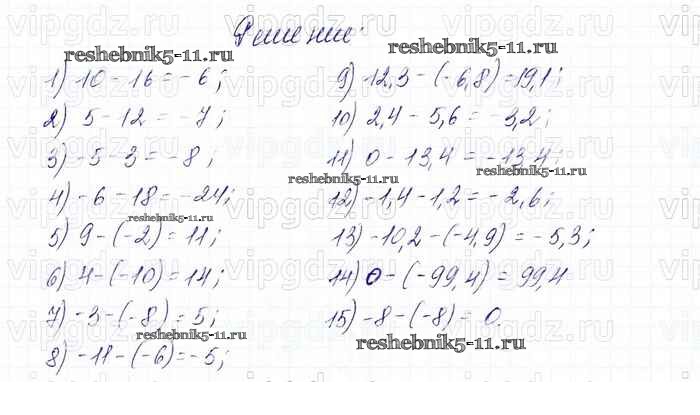 Решение:
1) 10 - 16 = - 6;
2) 5 - 12 = - 7;
3) - 5 - 3 = - 8;
4) - 6 - 18 = - 24;
5) 9 - (- 2) = 11;
6) 4 - (- 10) = 14;
7) - 3 - (- 8) = 5;
8) - 11 - (- 6) = - 5;
9) 12,3 - (- 6,8) = 19,1;
10) 2,4 - 5,6 = - 3,2;
11) 0 - 13,4 = - 13,4;
12) - 1,4 - 1,2 = - 2,6;
13) - 10,2 - (- 4,9) = - 5,3;
14) 0 - (- 99,4) = 99,4
15) - 8 - (- 8) = 0.
reshebnik5-11.ru
reshebnik5-11.ru
reshebnik5-11.ru
reshebnik5-11.ru
reshebnik5-11.ru
reshebnik5-11.ru
reshebnik5-11.ru
vipgdz.ru